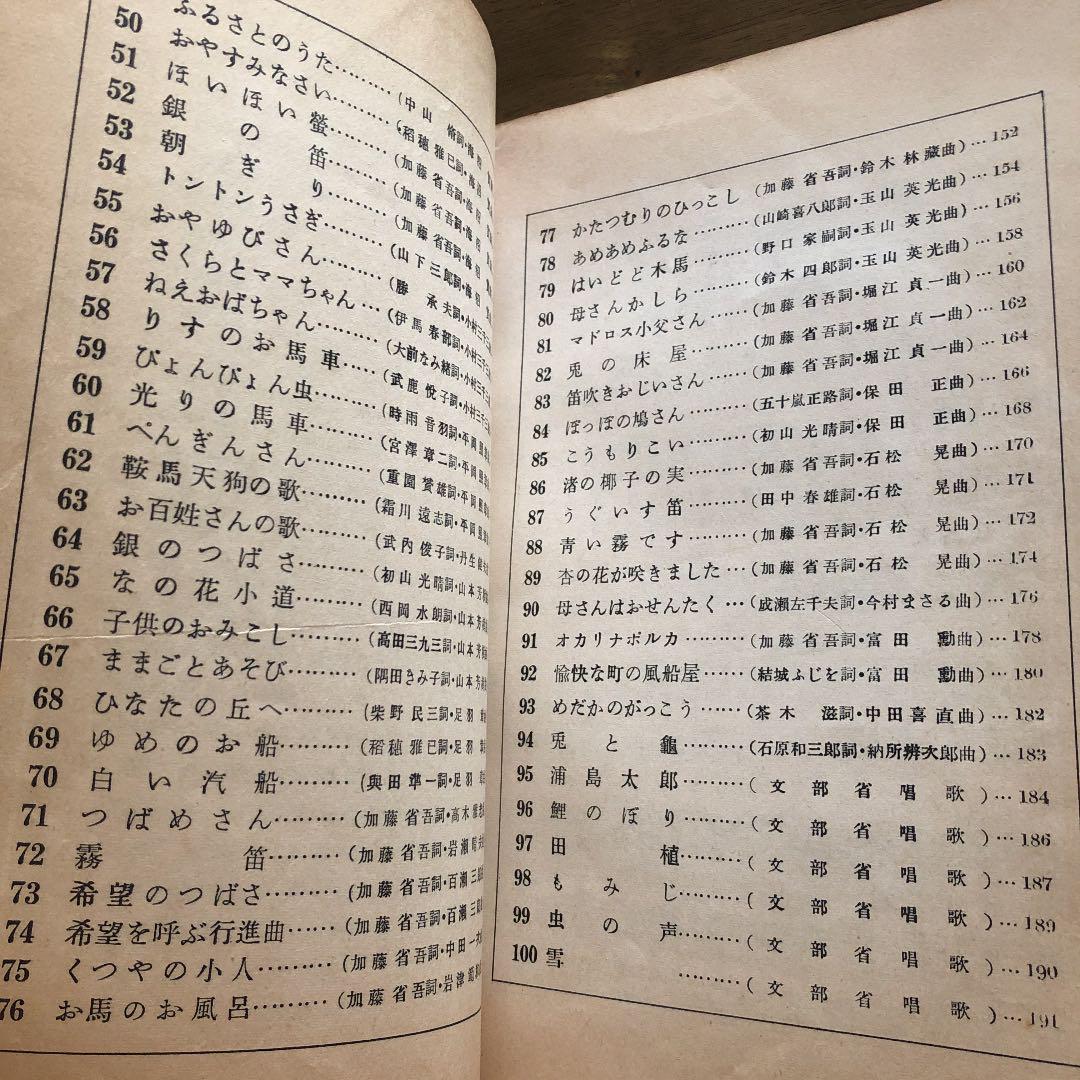 ふるさとのうた………(中山 脩詞・海沼
50 おやすみなさい………(稻穂雅巳詞・海沼
51 ほいほい螢………(加藤省吾詞・海沼
52 銀の笛………(加藤省吾詞・海沼
53 朝ぎり………(加藤省吾詞・海沼
54 トントンうさぎ………(山下三郎詞・海沼
55 おやゆびさん………(勝 承夫詞・小村三千三
56 さくらとママちゃん…(伊馬春部詞・小村三千三
57 ねえおばちゃん………(大前なみ緒詞・小村三千三
58 りすのお馬車………(武鹿悦子詞・小村三千三
59 ぴょんぴょん虫………(時雨音羽詞・平岡照
60 光りの馬車………(宮澤章二詞・平岡照
61 ぺんぎんさん………(重園贇雄詞・平岡照
62 鞍馬天狗の歌………(霜川遠志詞・平岡照
63 お百姓さんの歌………(武內俊子詞・丹生
64 銀のつばさ………(初山光晴詞・山本芳
65 なの花小道………(西岡水朗詞・山本芳
66 子供のおみこし………(高田三九三詞・山本芳
67 ままごとあそび………(隅田きみ子詞・山本芳
68 ひなたの丘へ………(柴野民三詞・足羽
69 ゆめのお船………(稻穂雅巳詞・足羽
70 白い汽船………(與田凖一詞・足羽
71 つばめさん………(加藤省吾詞・高木
72 霧笛………(加藤省吾詞・岩瀬
73 希望のつばさ………(加藤省吾詞・百瀬三
74 希望を呼ぶ行進曲………(加藤省吾詞・百瀬三
75 くつやの小人………(加藤省吾詞・中田一
76 お馬のお風呂………(加藤省吾詞・岩津
77 かたつむりのひっこし(加藤省吾詞・鈴木林藏曲)…152
78 あめあめふるな………(山崎喜八郎詞・玉山英光曲)…154
79 はいどど木馬………(野口家嗣詞・玉山英光曲)…156
80 母さんかしら………(鈴木四郎詞・玉山英光曲)…158
81 マドロス小父さん………(加藤省吾詞・堀江貞一曲)…160
82 兎の床屋………(加藤省吾詞・堀江貞一曲)…162
83 笛吹きおじいさん………(加藤省吾詞・堀江貞一曲)…164
84 ぽっぽの鳩さん………(五十嵐正路詞・保田 正曲)…166
85 こうもりこい………(初山光晴詞・保田 正曲)…168
86 渚の椰子の実………(加藤省吾詞・石松 晃曲)…170
87 うぐいす笛………(田中春雄詞・石松 晃曲)…171
88 青い霧です………(加藤省吾詞・石松 晃曲)…172
89 杏の花が咲きました…(加藤省吾詞・石松 晃曲)…174
90 母さんはおせんたく…(成瀬左千夫詞・今村まさる曲)…176
91 オカリナポルカ………(加藤省吾詞・富田 勳曲)…178
92 愉快な町の風船屋……(結城ふじを詞・富田 勳曲)…180
93 めだかのがっこう……(茶木 滋詞・中田喜直曲)…182
94 兎と龜………(石原和三郎詞・納所辨次郎曲)…183
95 浦島太郎………(文部省唱歌)…184
96 鯉のぼり………(文部省唱歌)…186
97 田植………(文部省唱歌)…187
98 もみじ………(文部省唱歌)…189
99 虫の声………(文部省唱歌)…190
100 雪………(文部省唱歌)…191